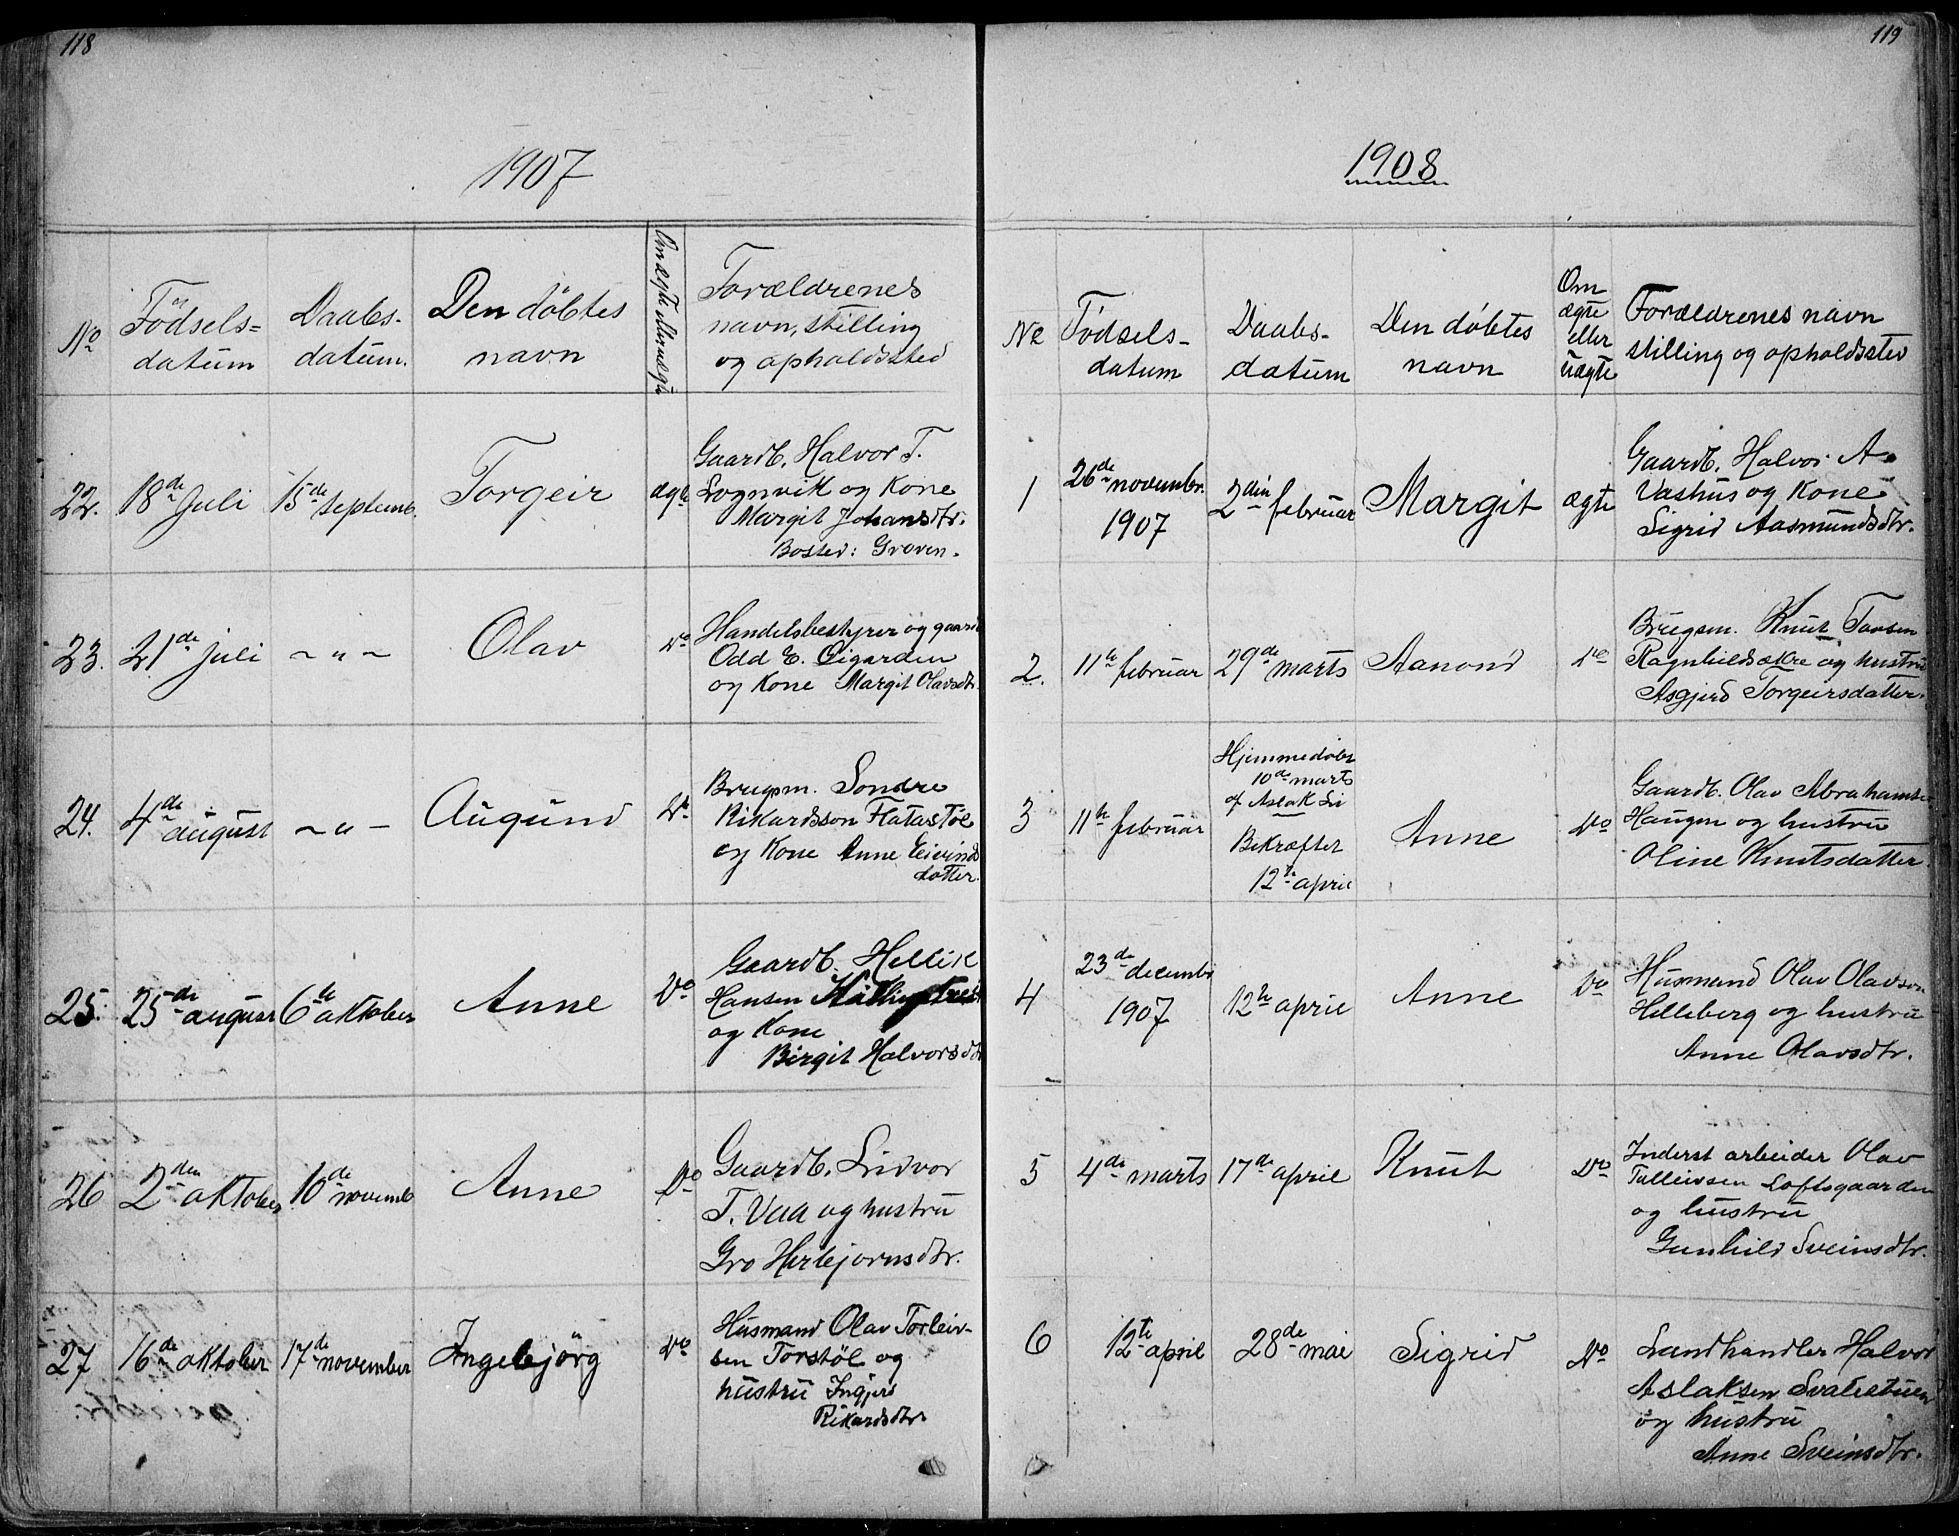 118
1907
No
Födsels-
datum
Daabs-
datum.
Den döbtes
navn
Om ægte ell. uægte
Forældrenes
navn, stilling
og opholdssted
22. 18de Juli 15de septemb. Torgeir ægte
Gaardb. Halvor T.
Lognvik og Kone
Margit Johansdtr.
Bosted: Groven.
23. 21de juli - " - Olav Do
Handelsbestyrer og gaardb
Odd E. Øigarden
og Kone Margit Olavsdtr.
24. 4de august - " - Augund Do
Brugsm. Sondre
Rikardsson Flatastöl
og Kone Anne Eivinds
datter.
25. 25de august 6te oktober Anne Do
Gaardb. Hellik
Hansen
og Kone
Birgit Halvorsdtr
26 2den oktober 10de novemb Anne Do
Gaardb. Lidvor
T. Vaa og hustru
Gro Herbjørnsdtr.
27 16de oktober 17de november Ingebjörg Do
Husmand Olav Torleiv-
sen Torstöl og
hustru Ingjerd
Rikardsdtr.
119
1908
No
Födsels-
datum
Daabs-
datum
Den døbtes
navn
Om
ægte
eller
uægte
Forældrenes navn
stilling og opholdssted
1 26de novembr. 1907 2den februar Margit ægte
Gaardb. Halvor A.
Vashus og Kone
Sigrid Aasmundsdtr.
2. 11te februar 29de marts Aanond Do
Brugsm. Knut Tovsen
Ragnhildsækre og hustru
Asgjerd Torgeirsdatter.
3 11te februar
Hjemmedøbt
10de marts
af Aslak Li
Bekræftet
12te april
Anne Do
Gaardb. Olav Abrahamsen
Haugen og hustru
Oline Knutsdatter
4 23de decembr 1907 12te april Anne Do
Husmand Olav Olavson
Helleberg og hustru
Anne Olavsdtr.
5 4de marts 17de april Knut Do
Inderst arbeider Olav
Tulleivsen Loftsgaarden
og hustru
Gunhild Sveinsdtr.
6 12te april 28de mai Sigrid Do
Landhandler Halvor
Aslaksen Svalestuen
og hustru
Anne Sveinsdtr.